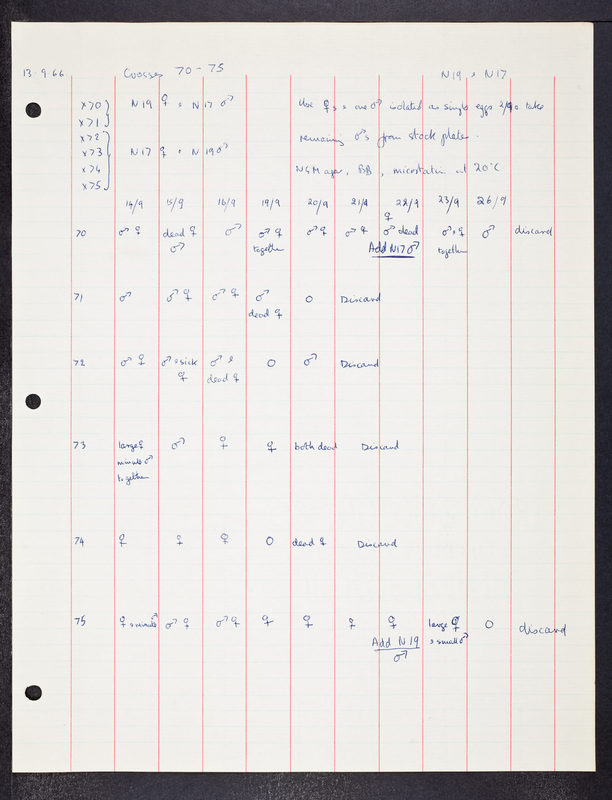 13.9.66 Crosses 70 - 75 N19 × N17
X70 } N19 ♀ × N17 ♂ Use ♀s × one ♂ isolated as single eggs take
X71
X72 } remaining ♂s from stock plates.
X73 N17 ♀ × N19 ♂
X74 NGM agar, BB, at 20°C
X75
14/9 15/9 16/9 19/9 20/9 21/9 22/9 23/9 26/9
♀
70 ♂ ♀ dead ♀ ♂ ♂ ♀ ♂ ♀ ♂ ♀ ♂ dead ♂ × ♀ ♂ discard
♂ together Add N17 ♂ together
71 ♂ ♂ ♀ ♂ ♀ ♂ O Discard
dead ♀
72 ♂ ♀ ♂ & sick ♂ & O ♂ Discard
♀ dead ♀
73 large ♀ ♂ ♀ ♀ both dead Discard
minute ♂
together
74 ♀ ♀ ♀ O dead ♀ Discard
75 ♀ & minute ♂ ♂ ♀ ♂ ♀ ♀ ♀ ♀ ♀ large ♀ O discard
Add N19 & small ♂
♂